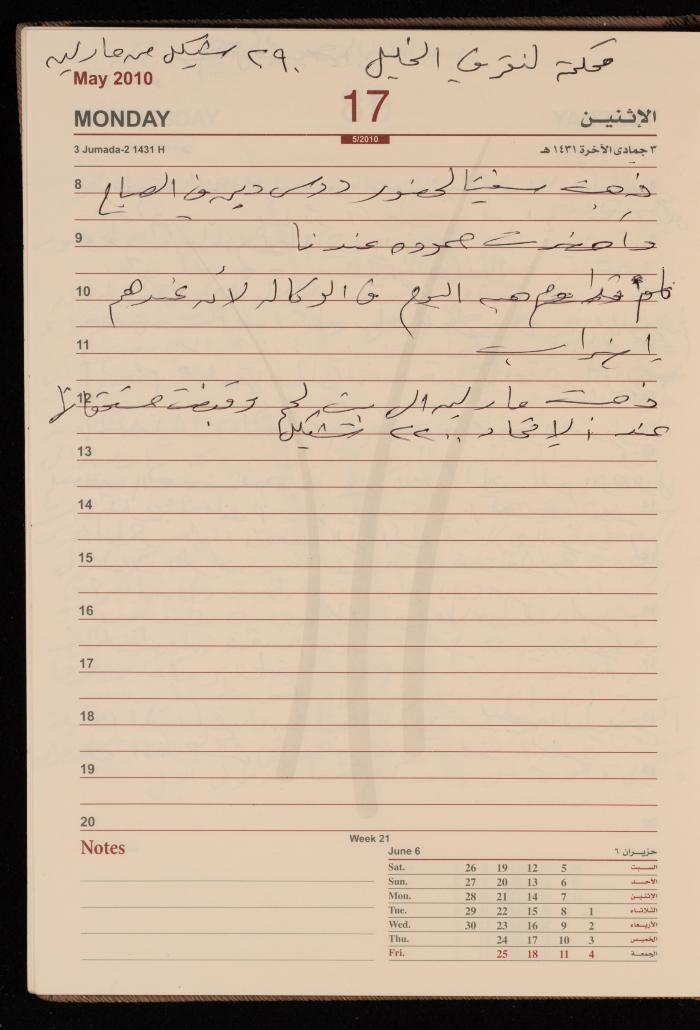 محكمة الخليل ٢٩٠ شيكل من مارليه
May 2010
17
MONDAY
الإثنيـن
5/2010
3 Jumada-2 1431 H
٣ جمادى الآخرة ١٤٣١ هـ
8
ذهبت لحضور درس في الصباح
9
وأحضرت حموده عندنا
10
اليوم في الوكاله لأنه عندهم
11
إضراب
12
ذهبت مارليه الى بيت لحم وقبضت مستحقاتها
عند الإتحاد ٢٢٠٠ شيكل
13
14
15
16
17
18
19
20
Notes
Week 21
June 6 حزيـران ٦
Sat. 26 19 12 5 السـبت
Sun. 27 20 13 6 الأحـد
Mon. 28 21 14 7 الإثنيـن
Tue. 29 22 15 8 1 الثـلاثـاء
Wed. 30 23 16 9 2 الأربـعاء
Thu. 24 17 10 3 الخميس
Fri. 25 18 11 4 الجمعـة